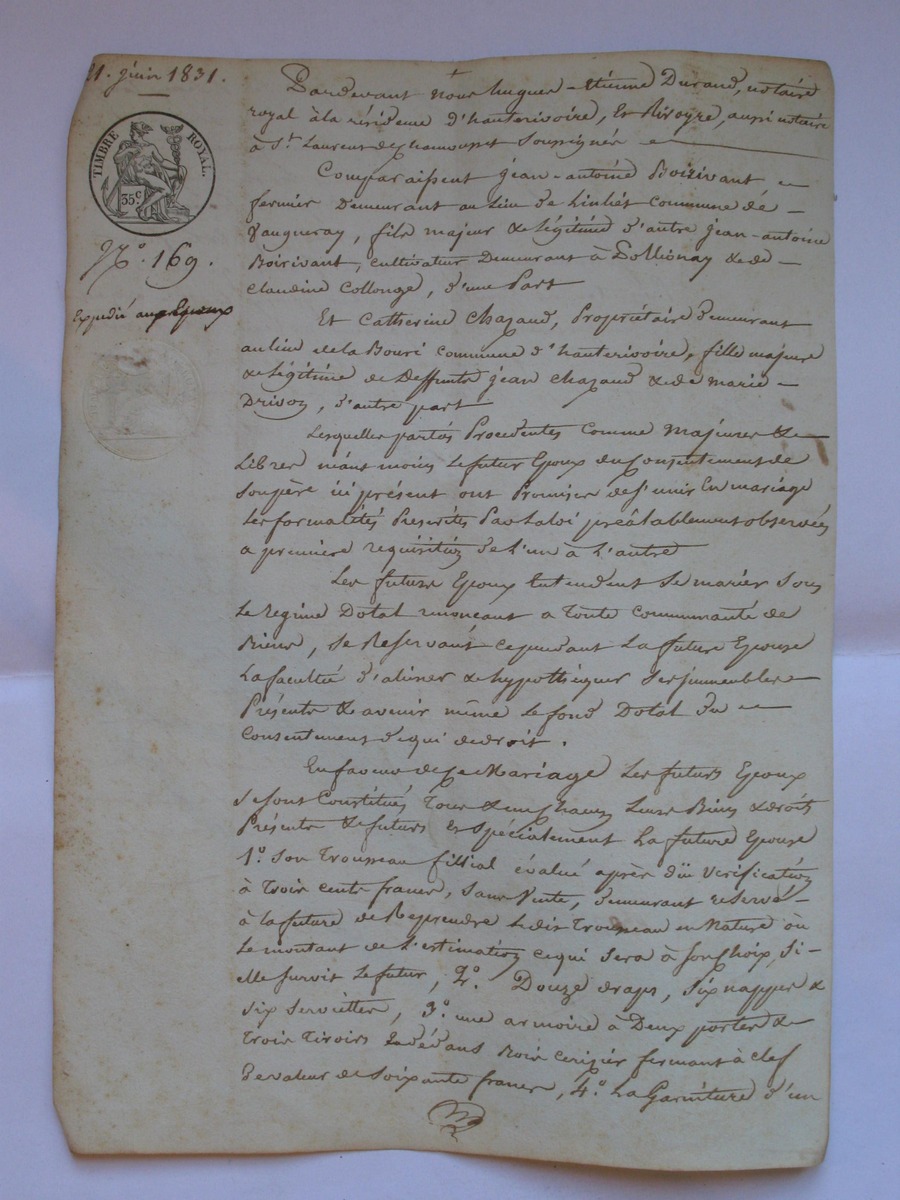 21. juin 1831.
TIMBRE ROYAL.
35c
N°. 169.
Expedié aux Epoux
Pardevant nous hugues-étienne Durand, notaire
royal à la résidence d'hauterivoire, Et Rivoyre, aussi notaire
à St. Laurent de chamousset Soussignés
Comparaissent jean-antoine Boirivant
fermier Demeurant au Lieu de Linliet Commune de
Vaugneray, fils majeur & légitime d'autre jean-antoine
Boirivant, cultivateur Demeurant à Pollionay & de
Claudine Collonge, d'une Part
Et Catherine Chazaud, Propriétaire demeurant
au lieu de la Bouri commune d'hauterivoire, fille majeure
& légitime de Deffunts jean Chazaud & de marie
Drivon, d'autre part
Lesquelles parties Procedentes Comme Majeures &
Libres néans moins Le futur Epoux du Consentement de
son père ici présent ont Promises de s'unir En mariage
les formalités Prescrites Par La loi préalablement observées
a première requisition de l'un à l'autre
Les futurs Epoux Entendent Se marier sous
Le regime Dotal renoncant a Toute communauté de
Biens, se Reservant cependant La future Epouse
La faculté d'aliener & hypothéquer ses immeubles
Présents & avenir même Le fond Dotal du
Consentement de qui de droit.
En faveur de ce Mariage Les futurs Epoux
se sont Constitués Tous & un chacun Leurs Biens & droits
Présents & futurs Et spécialement La future Epouse
1°. Son Trousseau fillial évalué après düe verification
à Trois cents francs, sans Vente, demeurant reservé
à la future de Reprendre Ledit Trousseau en Nature où
Le montant de L'estimation ce qui sera à son Choix, si
elle survit Le futur, 2°. Douze draps, six nappes &
six serviettes, 3°. une armoire à Deux portes &
Trois Tiroirs Bois cerizier fermant à clef
De valeur de Soixante francs, 4°. La Garniture d'un